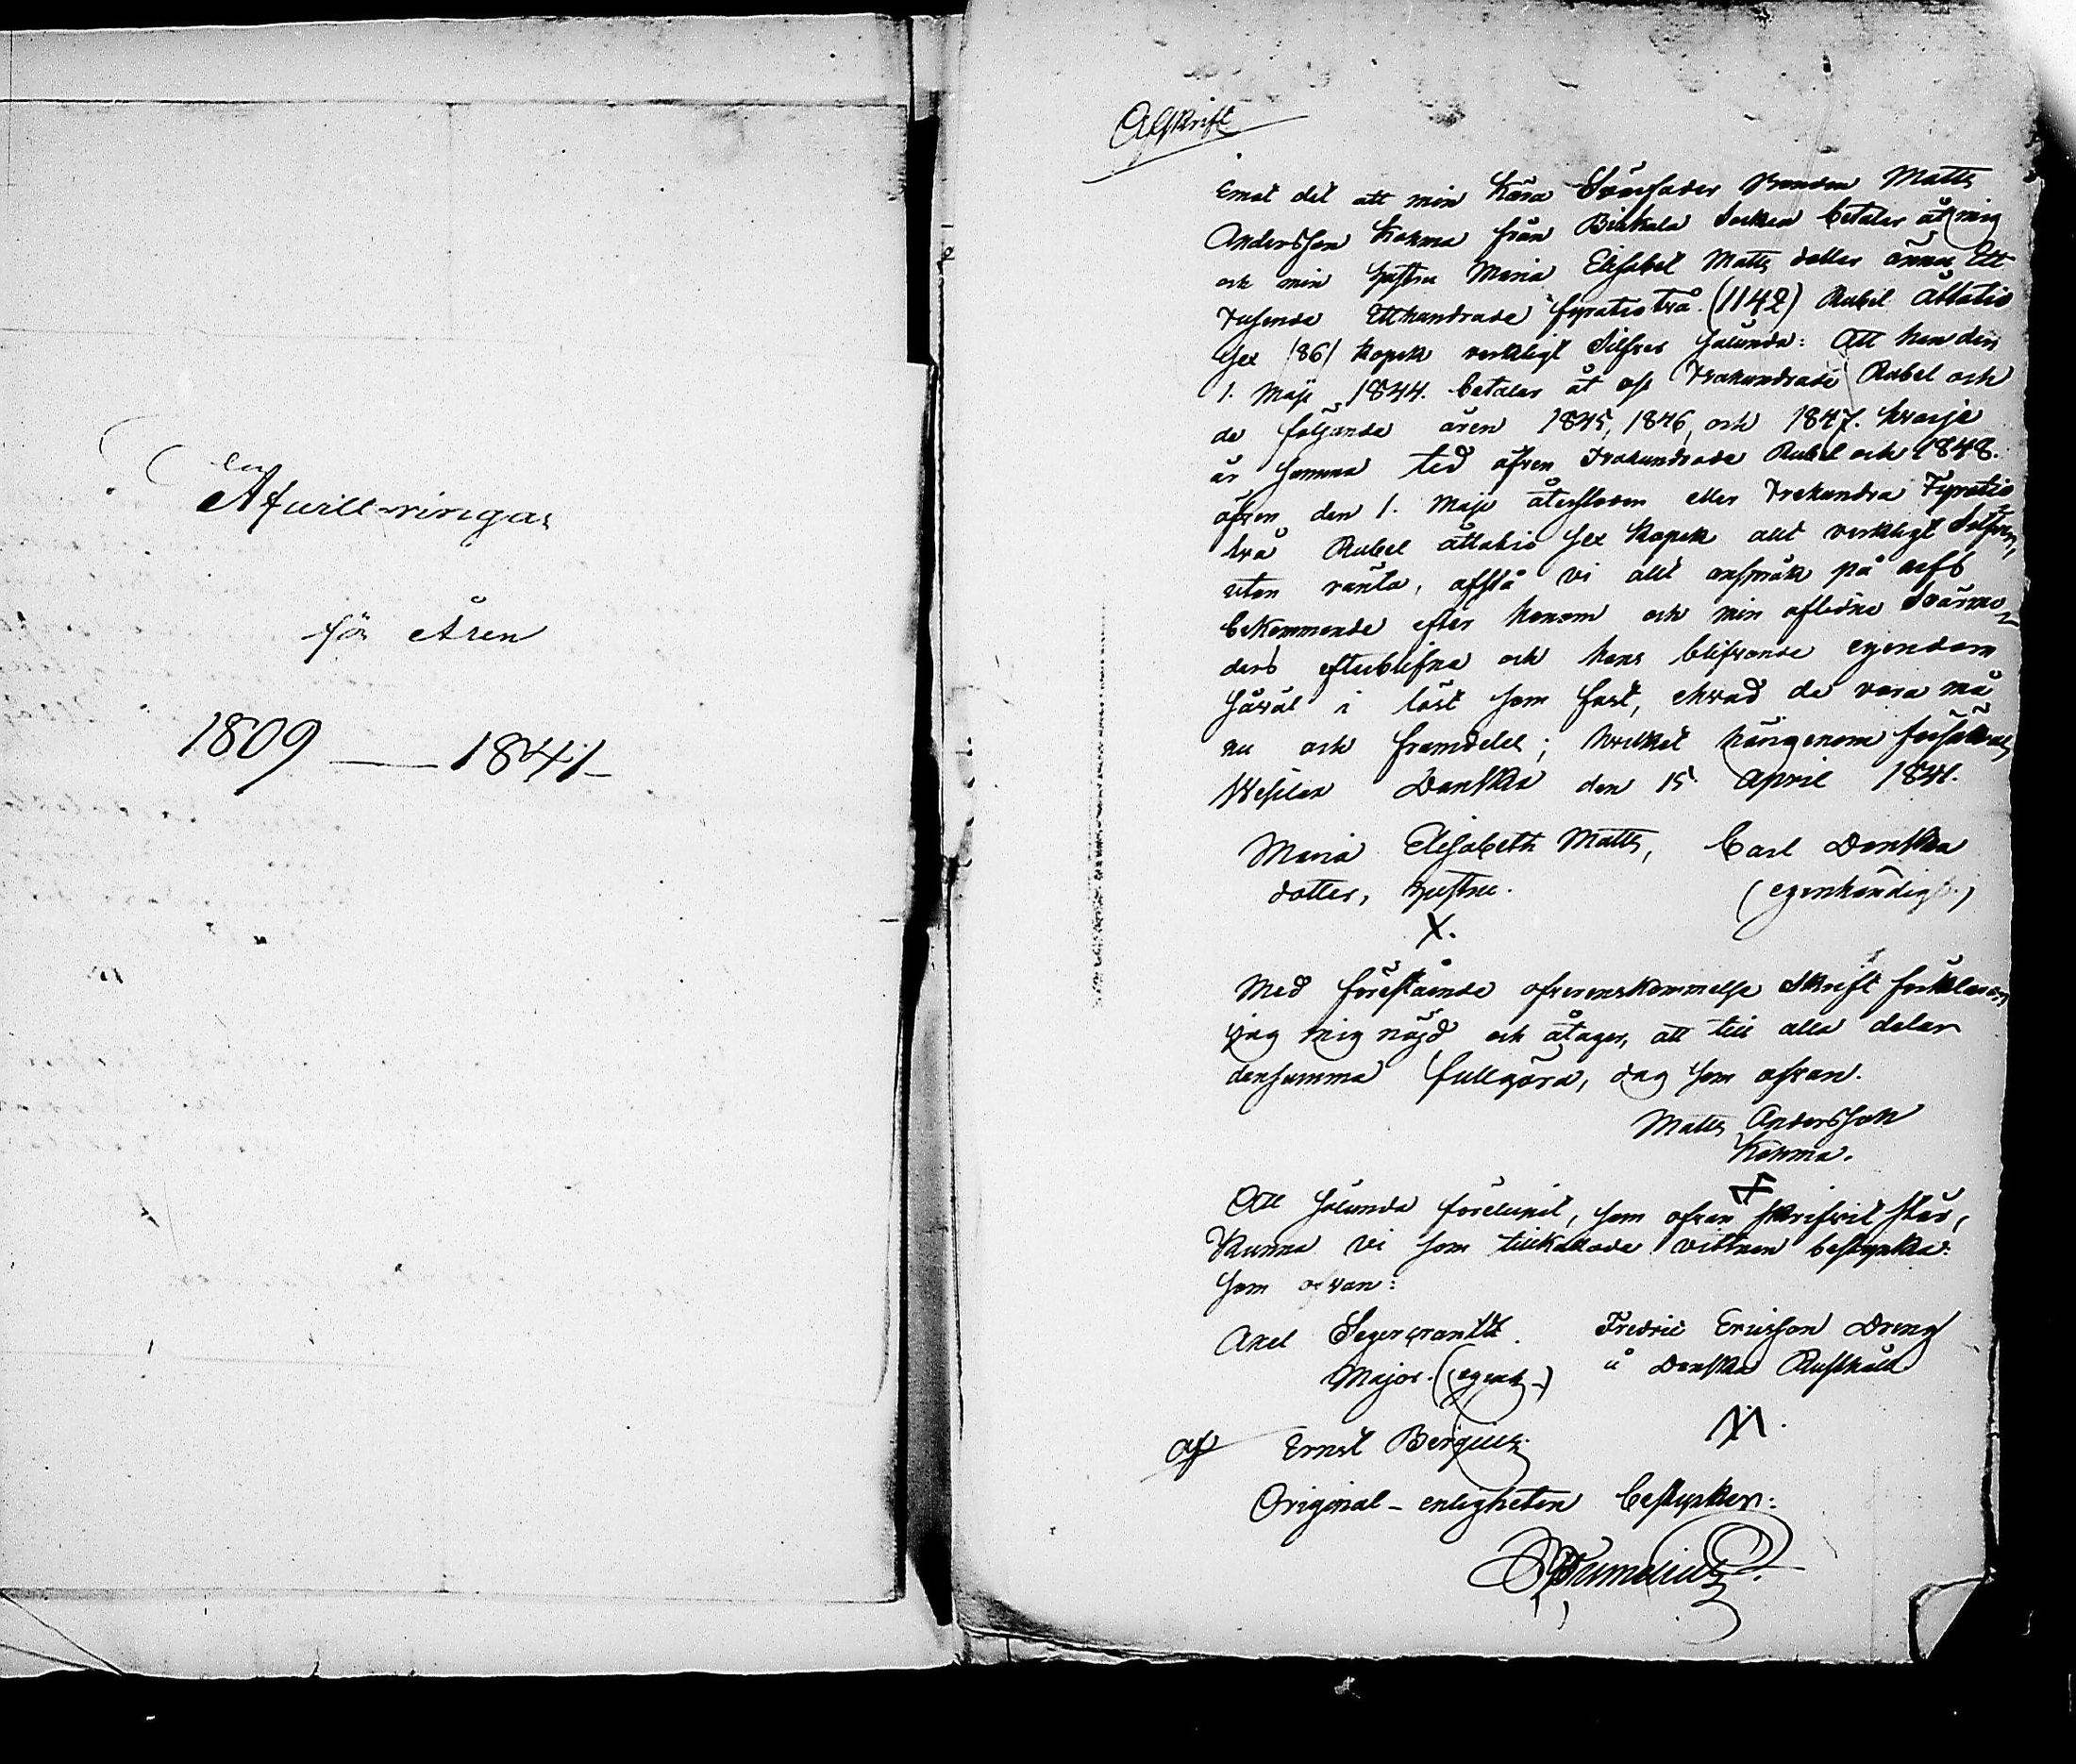 Afwittringar
för Åren
1809 — 1841
Afskrift
Emot det att min Kära Svärfader Bonden Matts
Andersson Kokma från Birkala Socken betalar åt mig
och min hustru Maria Elisabet Matts dotter ännu Ett
tusende Etthundrade fyratiotvå (1142) Rubel åttatio
sex /86/ kopek verkligt Silfver sålunda: Att han den
1. Maji 1844. betalar åt oss Tvåhundrade Rubel och
de följande åren 1845, 1846, och 1847. hvarje
år samma tid äfven Tvåhundrade Rubel och 1848.
äfven den 1. Maji återstoden eller Trehundra Fyratio
två Rubel åttatio sex kopek allt verkligt Silfver,
utan ränta, afstå vi allt anspråk på arfs
bekommande efter honom och min aflidna Svärmo
ders efterblifna och hans blifvande egendom
såväl i löst som fast, ehvad de vara må
nu och framdeles; hvilket härigenom försäkras
Wesilax Danska den 15 April 1841.
Maria Elisabeth Matts, Carl Danska
dotter, hustru. (egenhändigt)
X.
Med förestående öfverenskommelse Skrift förklarar
jag mig nöjd och åtager, att till alla delar
densamma fullgöra, dag som ofvan.
Matts Andersson
Kokma.
X
Att sålunda förelupit, som ofvan skrifvit står,
kunna vi som tillkallade vittnen bestyrka:
som ofvan:
Axel Segerstrandt. Fredric Ericsson Dreng
Major. (egenh.) å Danska Rusthåll
X.
af Ernst Bergius
Original-enligheten bestyrker: